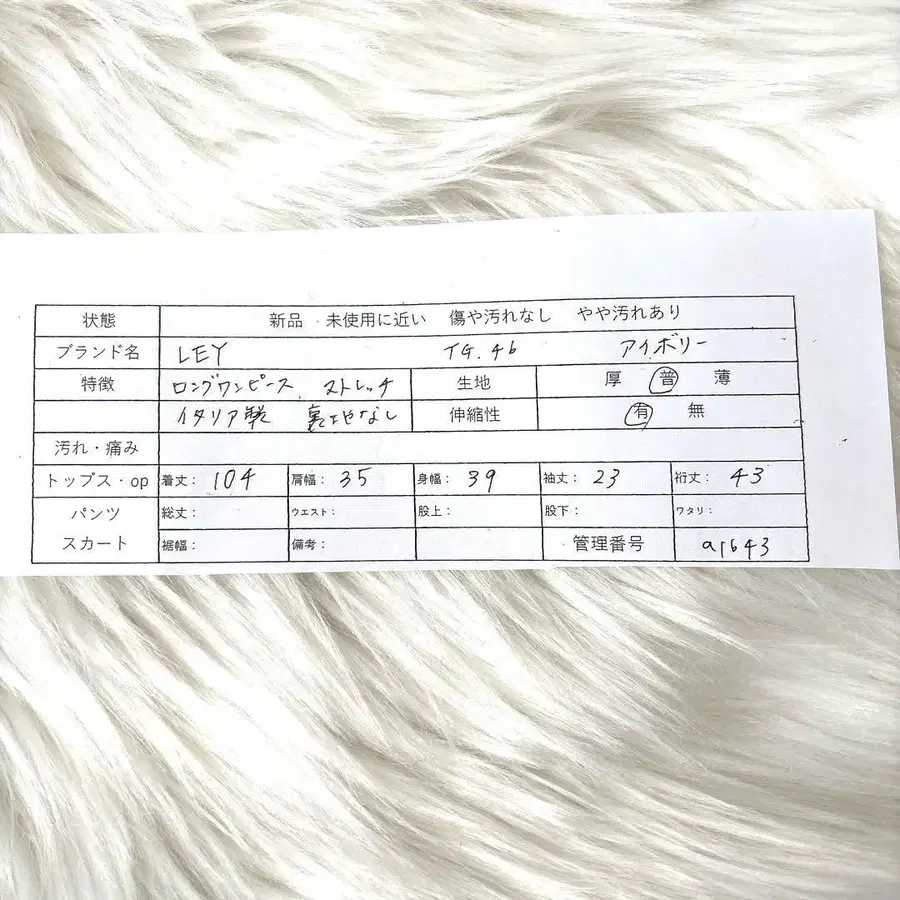 状態 新品 ・ 未使用に近い 傷や汚れなし やや汚れあり
ブランド名 LEY TG.46 アイボリー
特徴 ロングワンピース、ストレッチ 生地 厚 普 薄
イタリア製 裏地なし 伸縮性 有 無
汚れ・痛み
トップス・op 着丈： 104 肩幅： 35 身幅： 39 袖丈： 23 裄丈： 43
パンツ 総丈： ウエスト： 股上： 股下： ワタリ：
スカート 裾幅： 備考： 管理番号 a1643